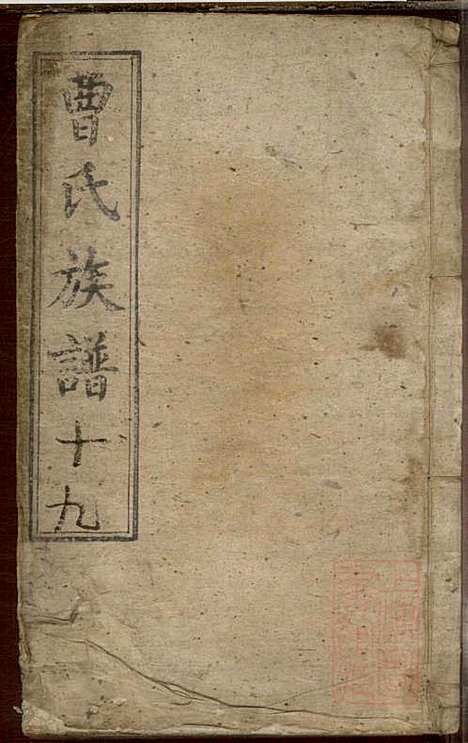 曹氏族譜十九